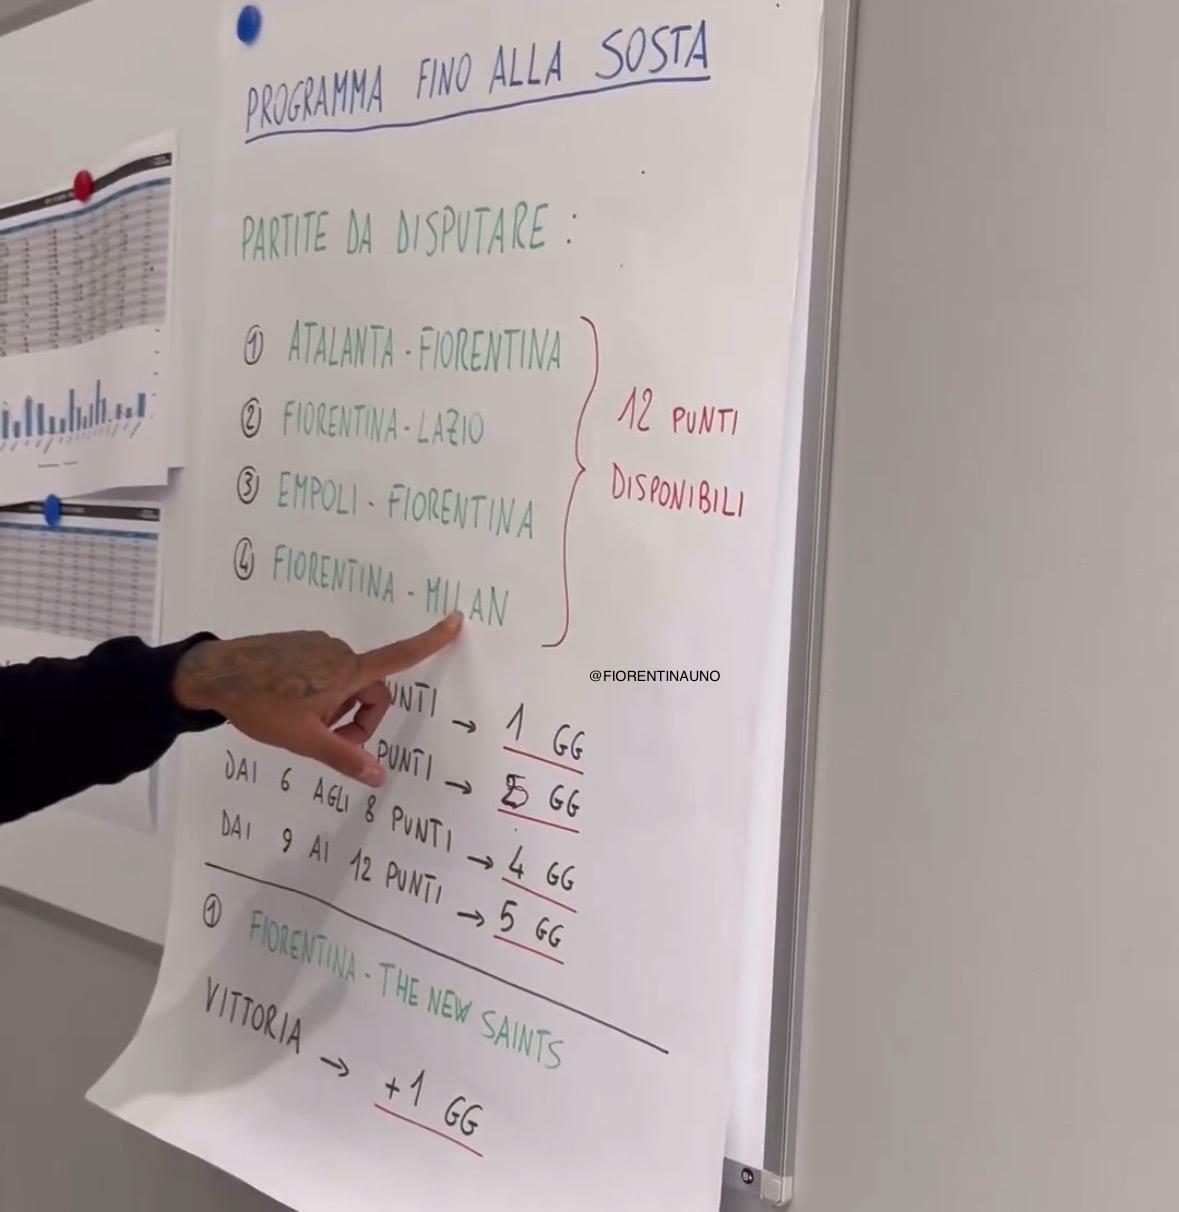 PROGRAMMA FINO ALLA SOSTA
PARTITE DA DISPUTARE :
① ATALANTA - FIORENTINA
② FIORENTINA - LAZIO
③ EMPOLI - FIORENTINA
④ FIORENTINA - MILAN
12 PUNTI
DISPONIBILI
@FIORENTINAUNO
PUNTI → 1 GG
PUNTI → GG
DAI 6 AGLI 8 PUNTI → 4 GG
DAI 9 AI 12 PUNTI → 5 GG
① FIORENTINA - THE NEW SAINTS
VITTORIA → +1 GG